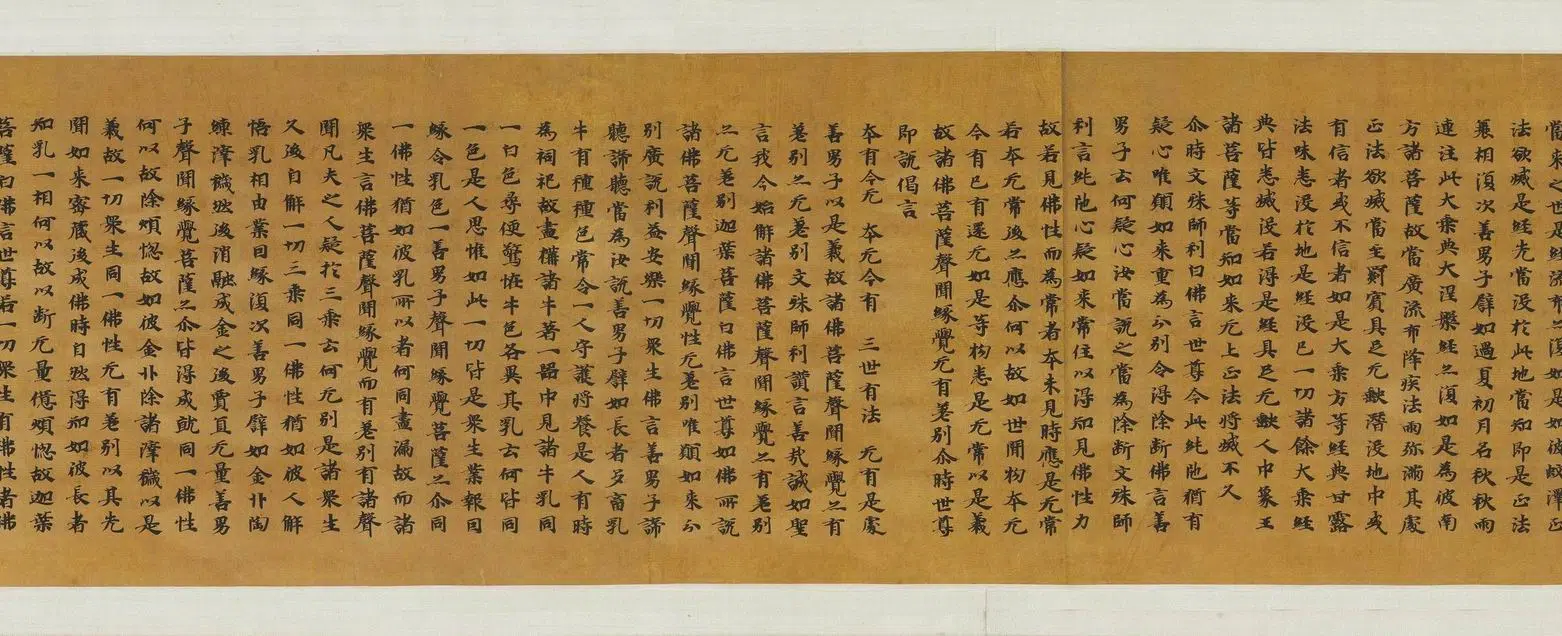 當来之世是經流布亦復如是如彼蚊澤正
法欲滅是経先當没於此地當知即是正法
衰相復次善男子譬如過夏初月名秋秋雨
連注此大乗典大涅槃経亦復如是為彼南
方諸菩薩故當廣流布降疾法雨弥滿其處
正法欲滅當至罽賓具足无缺潜没地中或
有信者或不信者如是大乗方等経典甘露
法味悉没於地是経没已一切諸餘大乗経
典皆悉滅没若得是経具足无缺人中象王
諸菩薩等當知如来无上正法將滅不久
尒時文殊師利白佛言世尊今此純陁猶有
疑心唯願如来重為分别令得除断佛言善
男子云何疑心汝當說之當為除断文殊師
利言純陁心疑如来常住以得知見佛性力
故若見佛性而為常者本未見時應是无常
若本无常後亦應尒何以故如世間物本无
今有已有還无如是等物悉是无常以是義
故諸佛菩薩聲聞縁覺无有差别尒時世尊
即說偈言
本有今无 本无今有 三世有法 无有是處
善男子以是義故諸佛菩薩聲聞縁覺亦有
差别亦无差别文殊師利讃言善哉誠如聖
言我今始解諸佛菩薩聲聞縁覺亦有差别
亦无差别迦葉菩薩白佛言世尊如佛所說
諸佛菩薩聲聞縁覺性无差别唯願如来分
别廣說利益安樂一切衆生佛言善男子諦
聽諦聽當為汝說善男子譬如長者多畜乳
牛有種種色常令一人守護將養是人有時
為祠祀故盡搆諸牛著一器中見諸牛乳同
一白色尋便驚怪牛色各異其乳云何皆同
一色是人思惟如此一切皆是衆生業報因
縁令乳色一善男子聲聞縁覺菩薩亦尒同
一佛性猶如彼乳所以者何同盡漏故而諸
衆生言佛菩薩聲聞縁覺而有差别有諸聲
聞凡夫之人疑於三乗云何无别是諸衆生
久後自解一切三乗同一佛性猶如彼人解
悟乳相由業因縁復次善男子譬如金卝陶
鍊滓穢然後消融成金之後賈直无量善男
子聲聞縁覺菩薩亦尒皆得成就同一佛性
何以故除煩惱故如彼金卝除諸滓穢以是
義故一切衆生同一佛性无有差别以其先
聞如来密藏後成佛時自然得知如彼長者
知乳一相何以故以断无量億煩惱故迦葉
菩薩白佛言世尊若一切衆生有佛性者佛